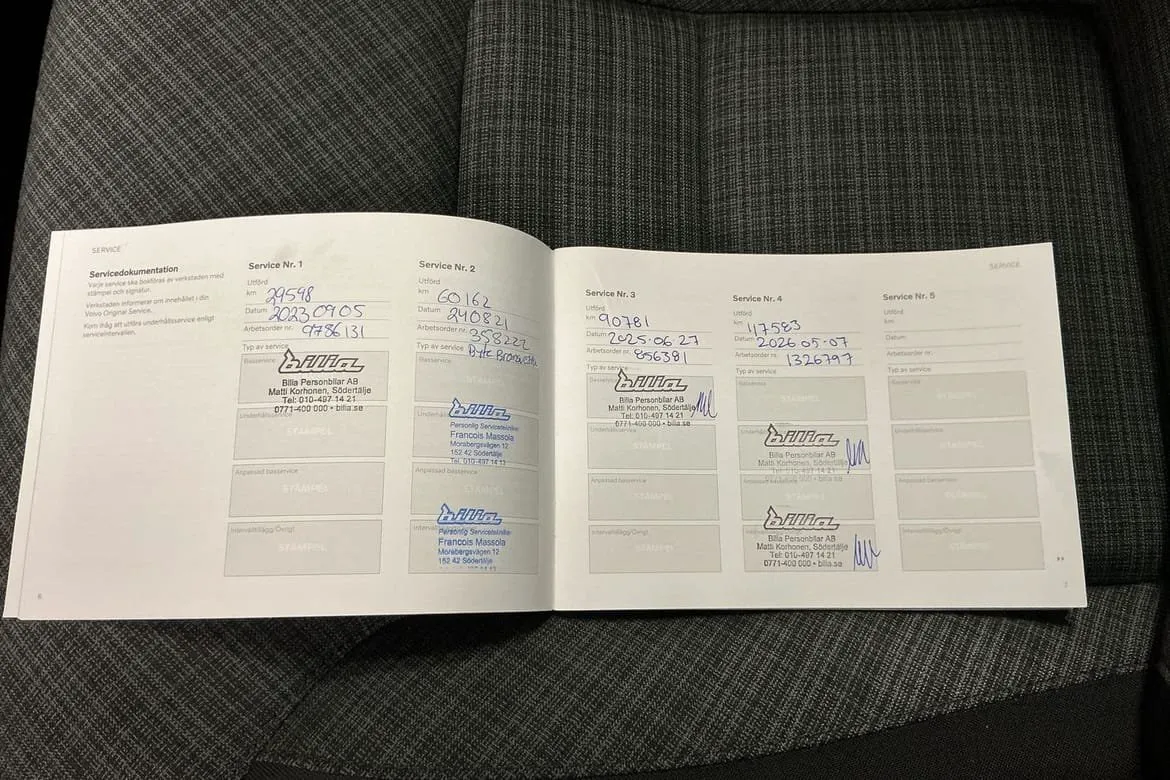 SERVICE
Servicedokumentation
Varje service ska bokföras av verkstaden med
stämpel och signatur.
Verkstaden informerar om innehållet i din
Volvo Original Service.
Kom ihåg att utföra underhållsservice enligt
serviceintervallen.
6
Service Nr. 1
Utförd
km 29598
Datum 20230905
Arbetsorder nr. 9786131
Typ av service
Basservice
billia
Billia Personbilar AB
Matti Korhonen, Södertälje
Tel: 010-497 14 21
0771-400 000 • bilia.se
Underhållsservice
STÄMPEL
Anpassad basservice
STÄMPEL
Intervalltillägg/Övrigt
STÄMPEL
Service Nr. 2
Utförd
km 60162
Datum 240821
Arbetsorder nr. 358222
Typ av service Byte
Basservice
STÄMPEL
Underhållsservice
billia
Personlig Servicetekniker
Francois Massola
Morabergsvägen 12
152 42 Södertälje
Tel. 010-497 14 13
Anpassad basservice
STÄMPEL
billia
Personlig Servicetekniker
Francois Massola
Morabergsvägen 12
152 42 Södertälje
SERVICE
Service Nr. 3
Utförd
km 90781
Datum 2025.06.27
Arbetsorder nr. 856381
Typ av service
billia
Billia Personbilar AB
Matti Korhonen, Södertälje
Tel: 010-497 14 21
0771-400 000 • bilia.se
Underhållsservice
STÄMPEL
Anpassad basservice
STÄMPEL
Intervalltillägg/Övrigt
STÄMPEL
Service Nr. 4
Utförd
km 117583
Datum 2026.05.07
Arbetsorder nr. 1326797
Typ av service
Basservice
STÄMPEL
billia
Billia Personbilar AB
Matti Korhonen, Södertälje
Tel: 010-497 14 21
0771-400 000 • bilia.se
Anpassad basservice
STÄMPEL
billia
Billia Personbilar AB
Matti Korhonen, Södertälje
Tel: 010-497 14 21
0771-400 000 • bilia.se
Service Nr. 5
Utförd
km
Datum
Arbetsorder nr.
Typ av service
Basservice
STÄMPEL
Underhållsservice
STÄMPEL
Anpassad basservice
STÄMPEL
Intervalltillägg/Övrigt
STÄMPEL
7